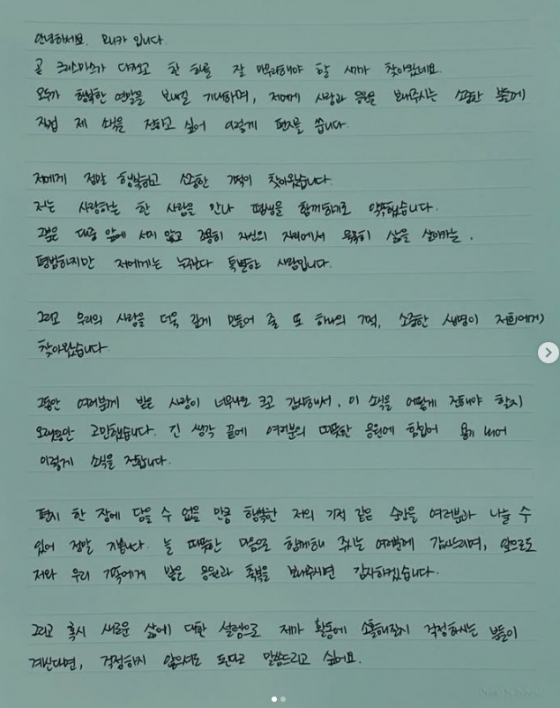 안녕하세요. 모니카 입니다.
곧 크리스마스가 다가오고 한 해를 잘 마무리해야 할 시기가 찾아왔네요.
모두가 행복한 연말을 보내길 기대하며, 저에게 사랑과 응원을 보내주시는 소중한 분들께
직접 제 소식을 전하고 싶어 이렇게 편지를 씁니다.
저에게 정말 행복하고 소중한 기적이 찾아왔습니다.
저는 사랑하는 한 사람을 만나 평생을 함께하기로 약속했습니다.
그분은 대중 앞에 서지 않고 조용히 자신의 자리에서 묵묵히 삶을 살아가는,
평범하지만 저에게는 누구보다 특별한 사람입니다.
그리고 우리의 사랑을 더욱 깊게 만들어 줄 또 하나의 기적, 소중한 생명이 저희에게
찾아왔습니다.
그동안 여러분께 받은 사랑이 너무나도 크고 감사해서, 이 소식을 어떻게 전해야 할지
오랫동안 고민했습니다. 긴 생각 끝에 여러분의 따뜻한 응원에 힘입어 용기 내어
이렇게 소식을 전합니다.
편지 한 장에 담을 수 없을 만큼 행복한 저의 기적 같은 순간을 여러분과 나눌 수
있어 정말 기쁩니다. 늘 따뜻한 마음으로 함께해 주시는 여러분께 감사드리며, 앞으로도
저와 우리 가족에게 많은 응원과 축복을 보내주시면 감사하겠습니다.
그리고 혹시 새로운 삶에 대한 설렘으로 제가 활동에 소홀해질지 걱정하시는 분들이
계신다면, 걱정하지 않으셔도 된다고 말씀드리고 싶어요.